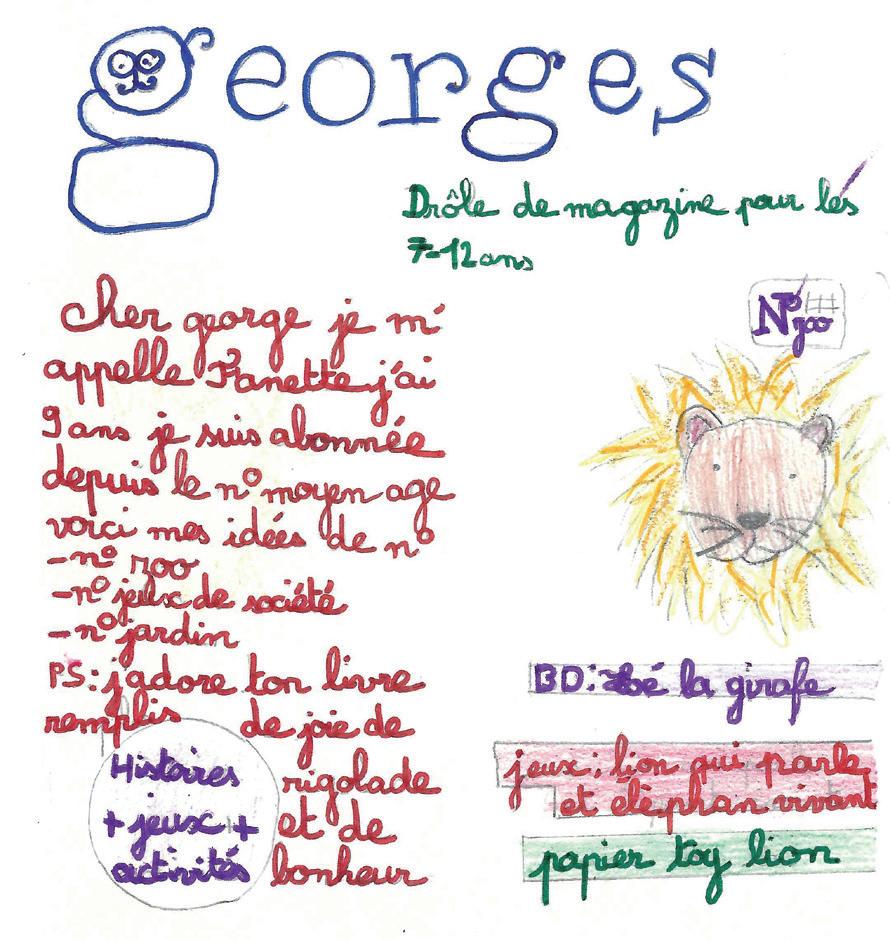 georges
Drôle de magazine pour les
7-12 ans
cher george je m'
appelle Fanette j'ai
9 ans je suis abonnée
depuis le n° moyen age
voici mes idées de n°
- n° zoo
- n° jeux de société
- n° jardin
PS: j'adore ton livre
remplis de joie de
rigolade
et de
bonheur
Histoires
+ jeux +
activités
N°
zoo
BD: zbé la girafe
jeux: lion qui parle
et eléphan vivant
papier toy lion